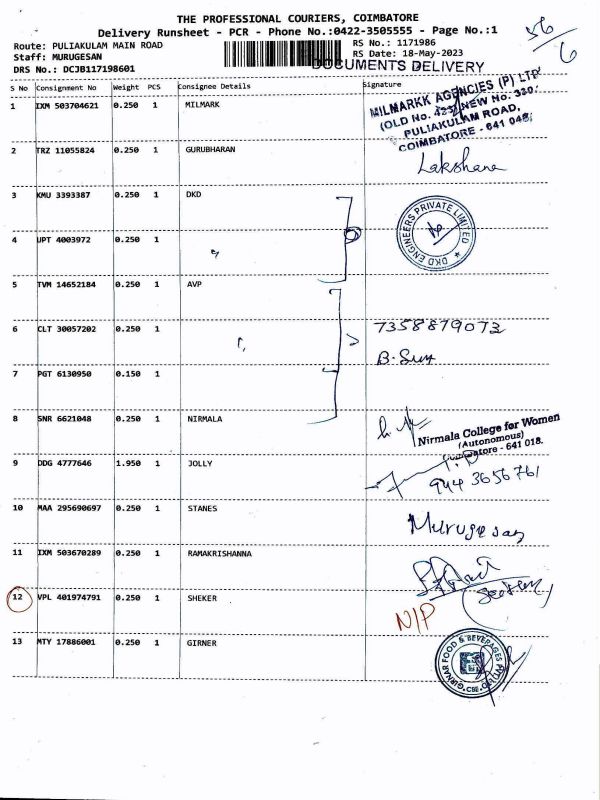 THE PROFESSIONAL COURIERS, COIMBATORE
Delivery Runsheet - PCR - Phone No.:0422-3505555 - Page No.:1
56/6
Route: PULIAKULAM MAIN ROAD
RS No.: 1171986
Staff: MURUGESAN
RS Date: 18-May-2023
DRS No.: DCJB117198601
DOCUMENTS DELIVERY
S No Consignment No Weight PCS Consignee Details Signature
1 IXM 503704621 0.250 1 MILMARK
MILMARKK AGENCIES (P) LTD
(OLD No. 423) NEW No. 330,
PULIAKULAM ROAD,
COIMBATORE - 641 045.
2 TRZ 11055824 0.250 1 GURUBHARAN
Lakshana
3 KMU 3393387 0.250 1 DKD
DKD ENGINEERS PRIVATE LIMITED
4 UPT 4003972 0.250 1 "
5 TVM 14652184 0.250 1 AVP
6 CLT 30057202 0.250 1 "
7358879073
B.
7 PGT 6130950 0.150 1
8 SNR 6621048 0.250 1 NIRMALA
Nirmala College for Women
(Autonomous)
Coimbatore - 641 018.
9 DDG 4777646 1.950 1 JOLLY
944 3656761
10 MAA 295690697 0.250 1 STANES
Murugesan
11 IXM 503670289 0.250 1 RAMAKRISHANNA
12 VPL 401974791 0.250 1 SHEKER
N/P
13 MTY 17886001 0.250 1 GIRNER
GIRNAR FOOD & BEVERAGES PVT LTD
CBE.